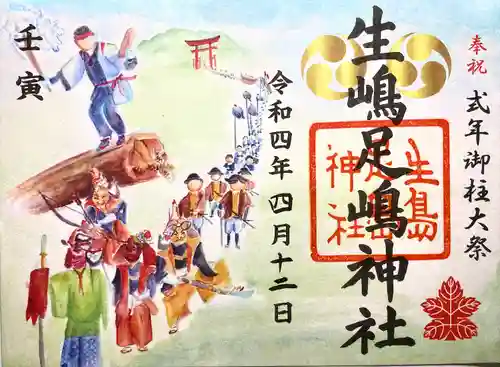 奉祝
式年御柱大祭
生嶋足嶋神社
生島足島神社
令和四年四月十二日
壬寅